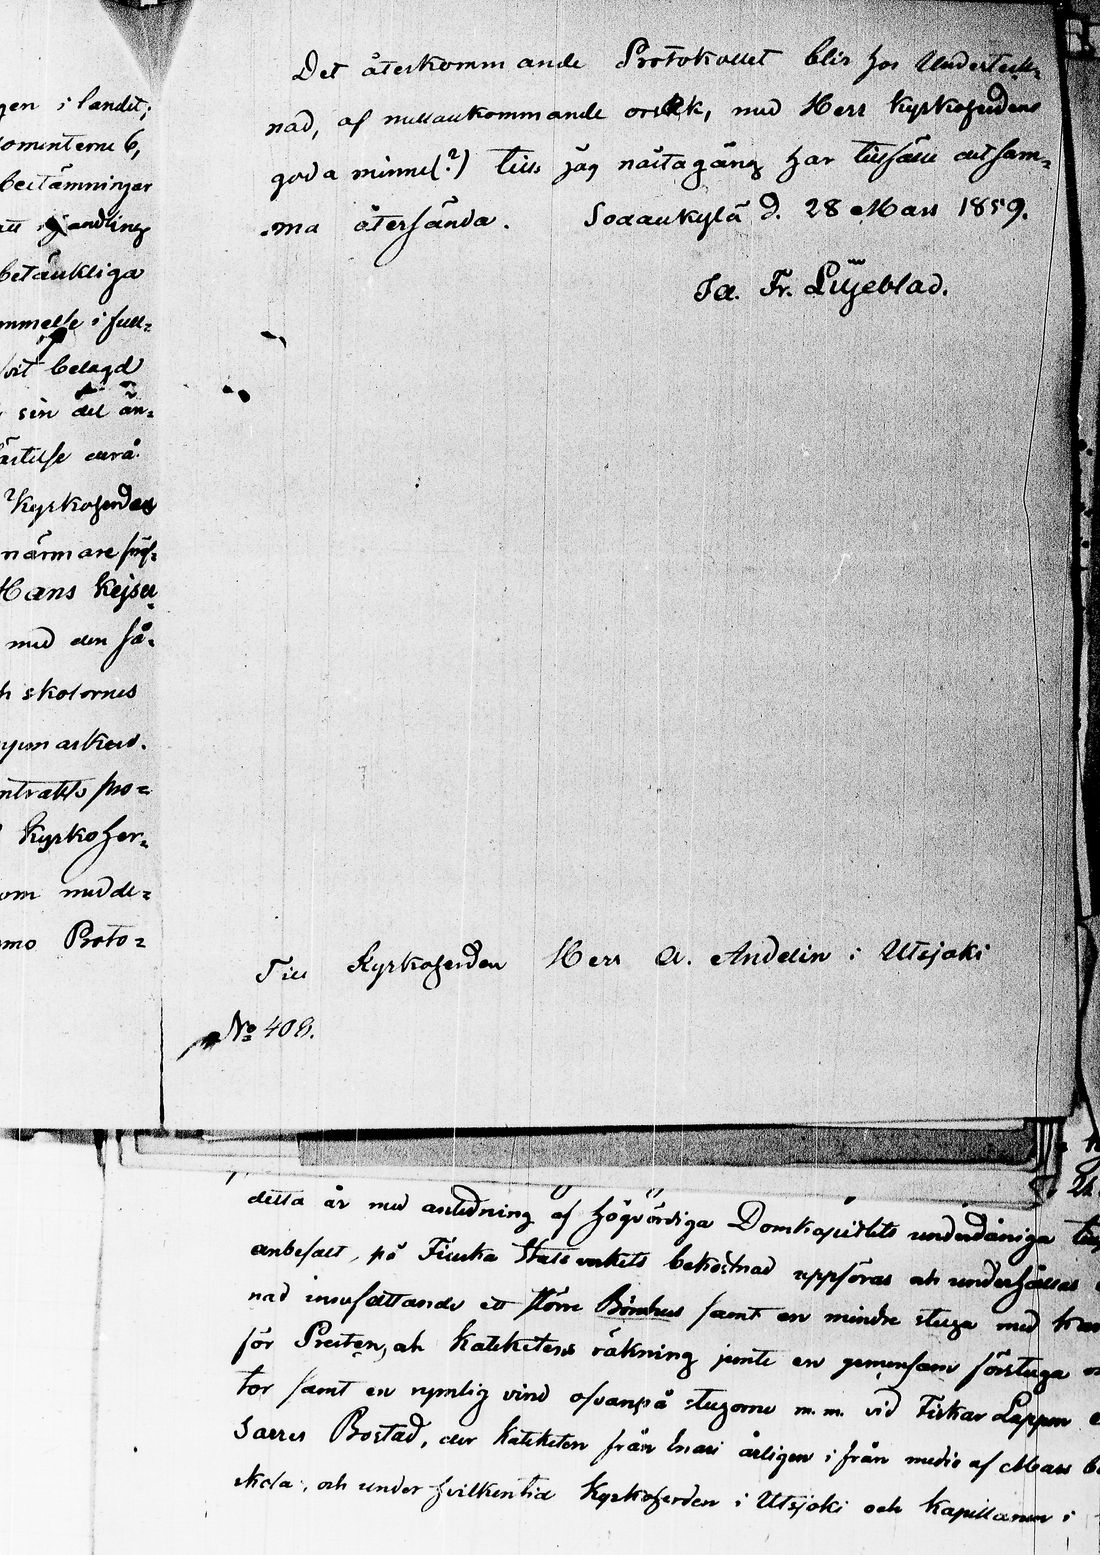 gen i landet;
omenterne 6,
bestämningar
att
betänkliga
mmelse i full-
belagd
sin del än-
Kyrkoherden
närmare
Hans Kejser
med den få-
h skolornes
ntrakts pro-
Kyrkoher-
om medde-
mo Proto-
Det återkommande Protokollet blir hos Underteck-
nad, af mellankommande orsak, med Herr Kyrkoherdens
goda minne(?) tills jag nästa gång har tillfälle det sam-
ma återsända. Sodankylä d. 28 Mars 1859.
Ja. Fr. Liljeblad.
Till Kyrkoherden Herr A. Andelin i Utsjoki
No 408.
detta år med anledning af Högvördiga Domkapitlets underdåniga
anbefalt, på Finska Statsverkets bekostnad uppföras och underhållas
nad innefattande ett större Bönehus samt en mindre stuga med
för Presten, och Kateketens räkning jemte en gemensam förstuga
tor samt en rymlig vind ofvanpå stugorne m.m. vid Fiskar Lappen
Sarres Bostad, der Kateketen från Enari årligen ifrån medio af Mars
skola, och under hvilken tid Kyrkoherden i Utsjoki och Kapellanen i